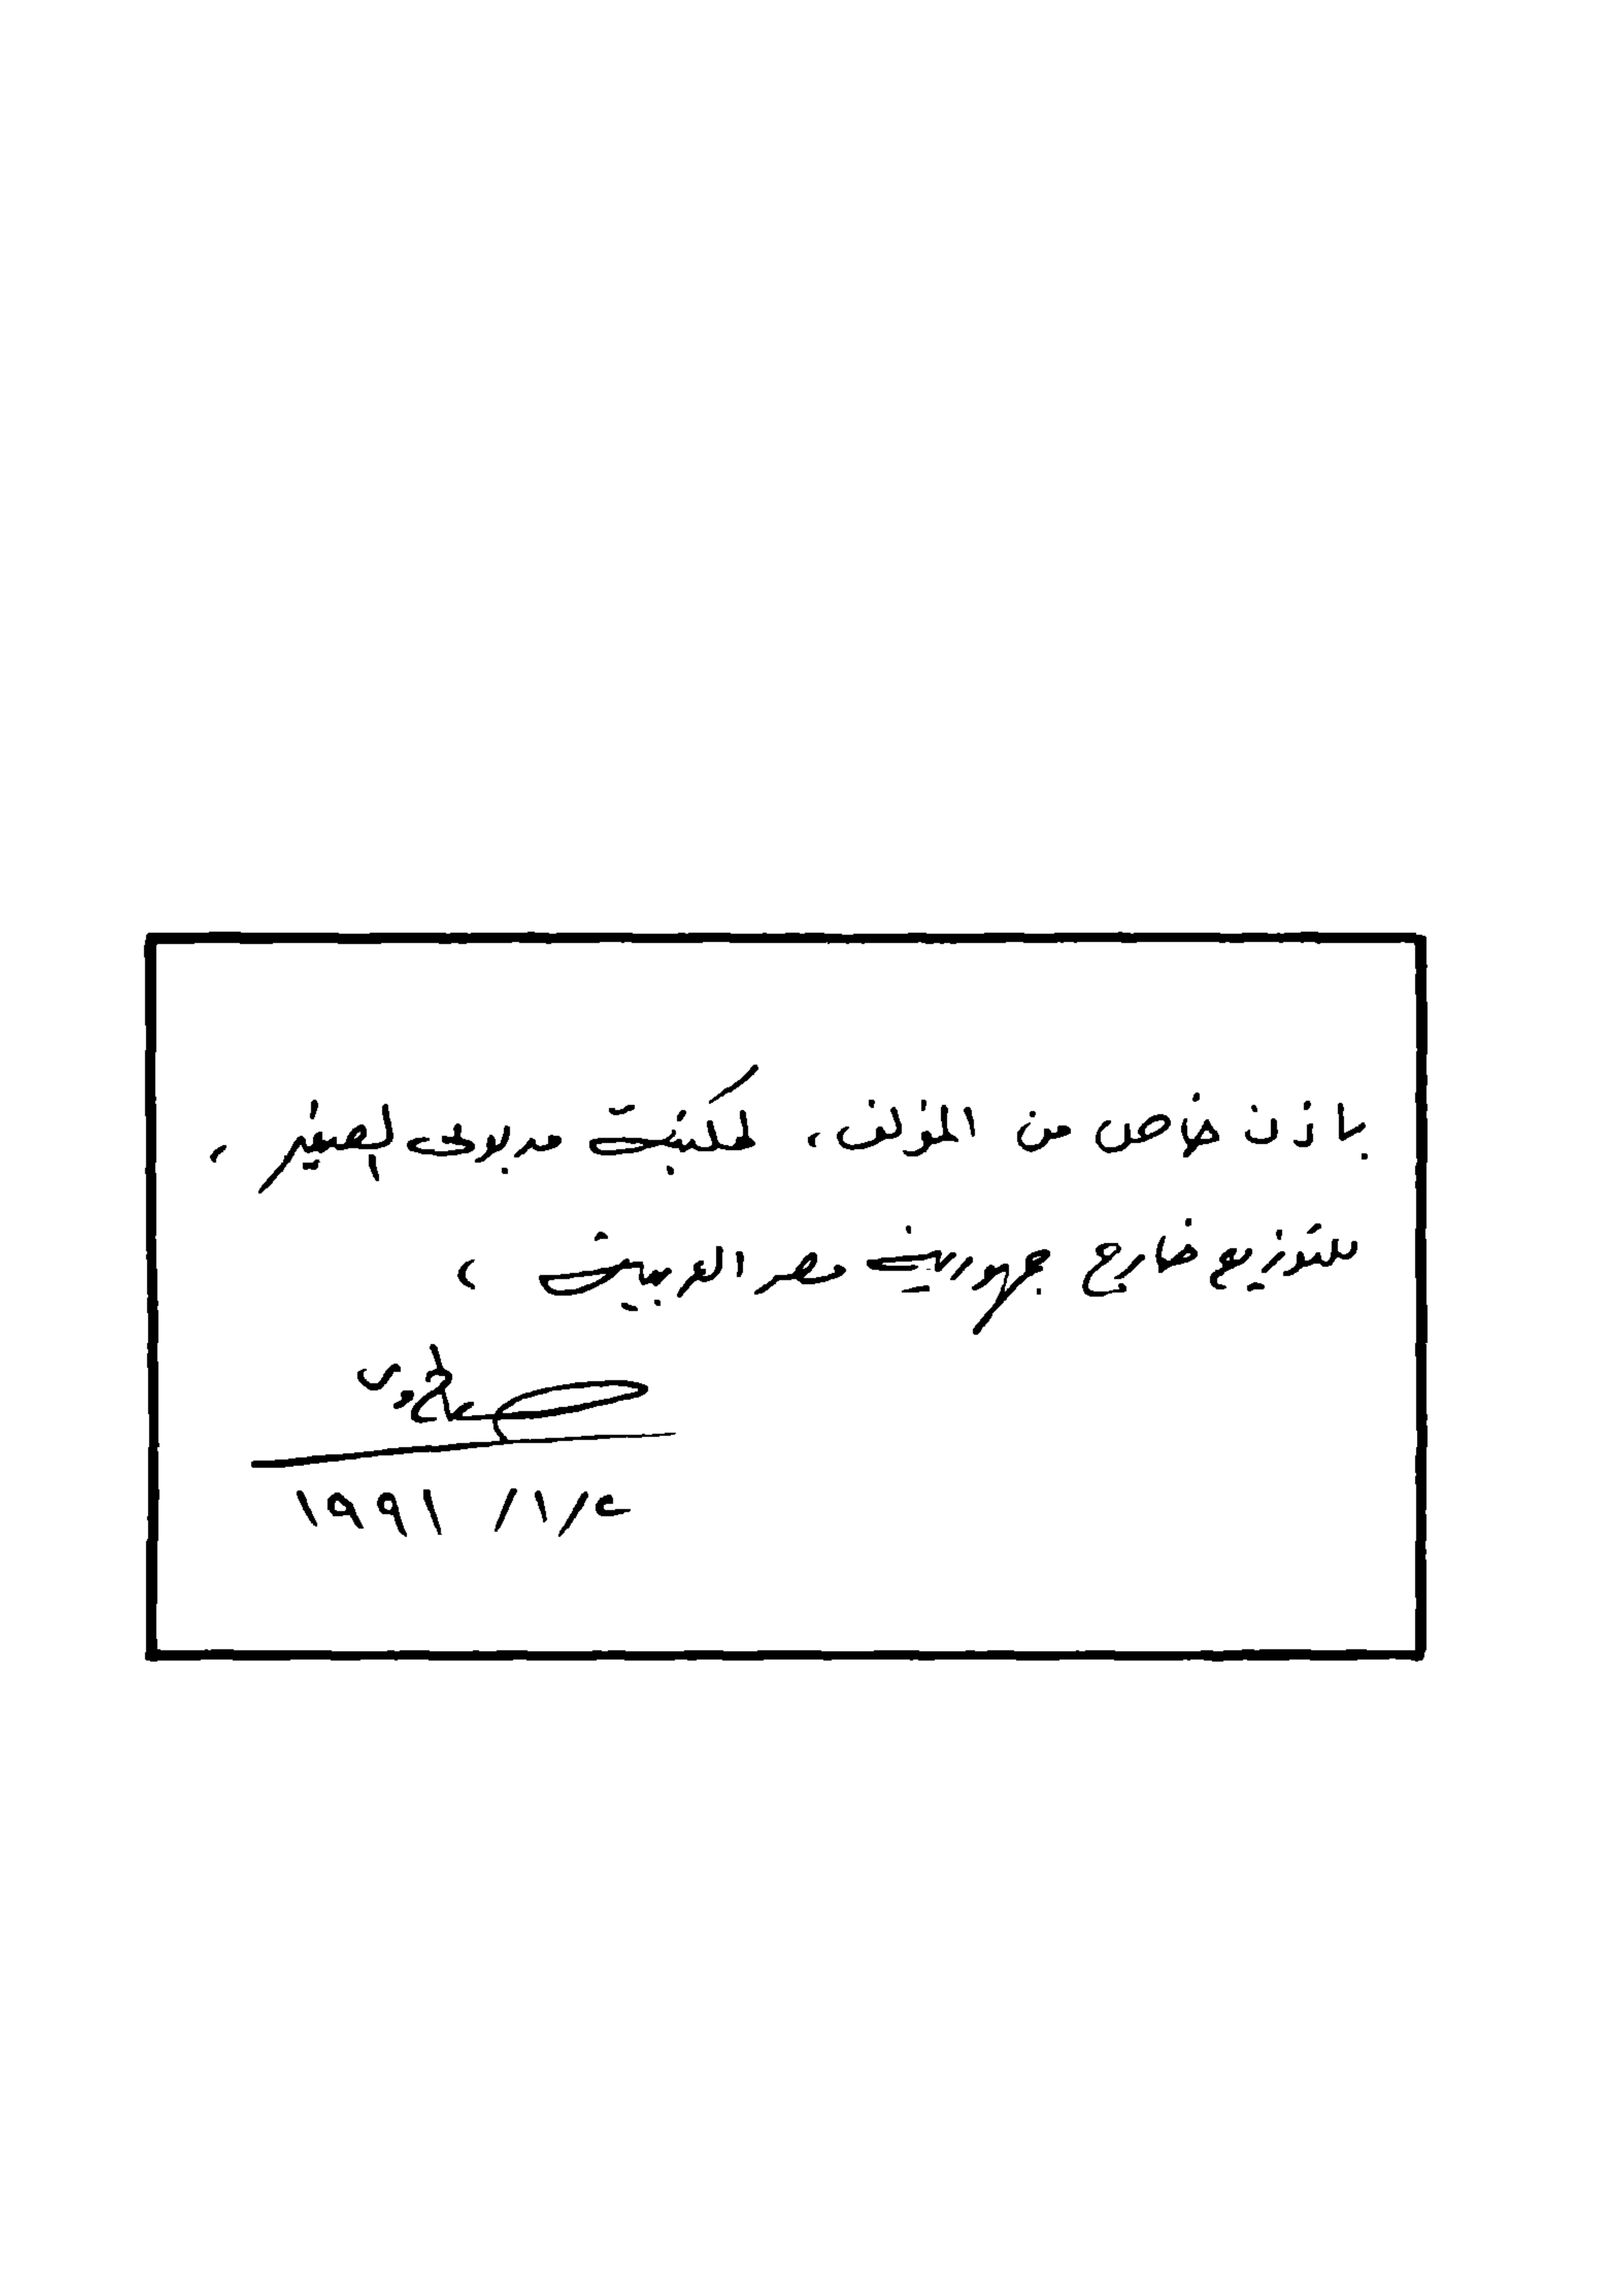 بإذن خاص من المؤلف، لمكتبة مدبولى الصغير،
للتوزيع خارج جمهورية مصر العربية،
٤/١/١٩٩١